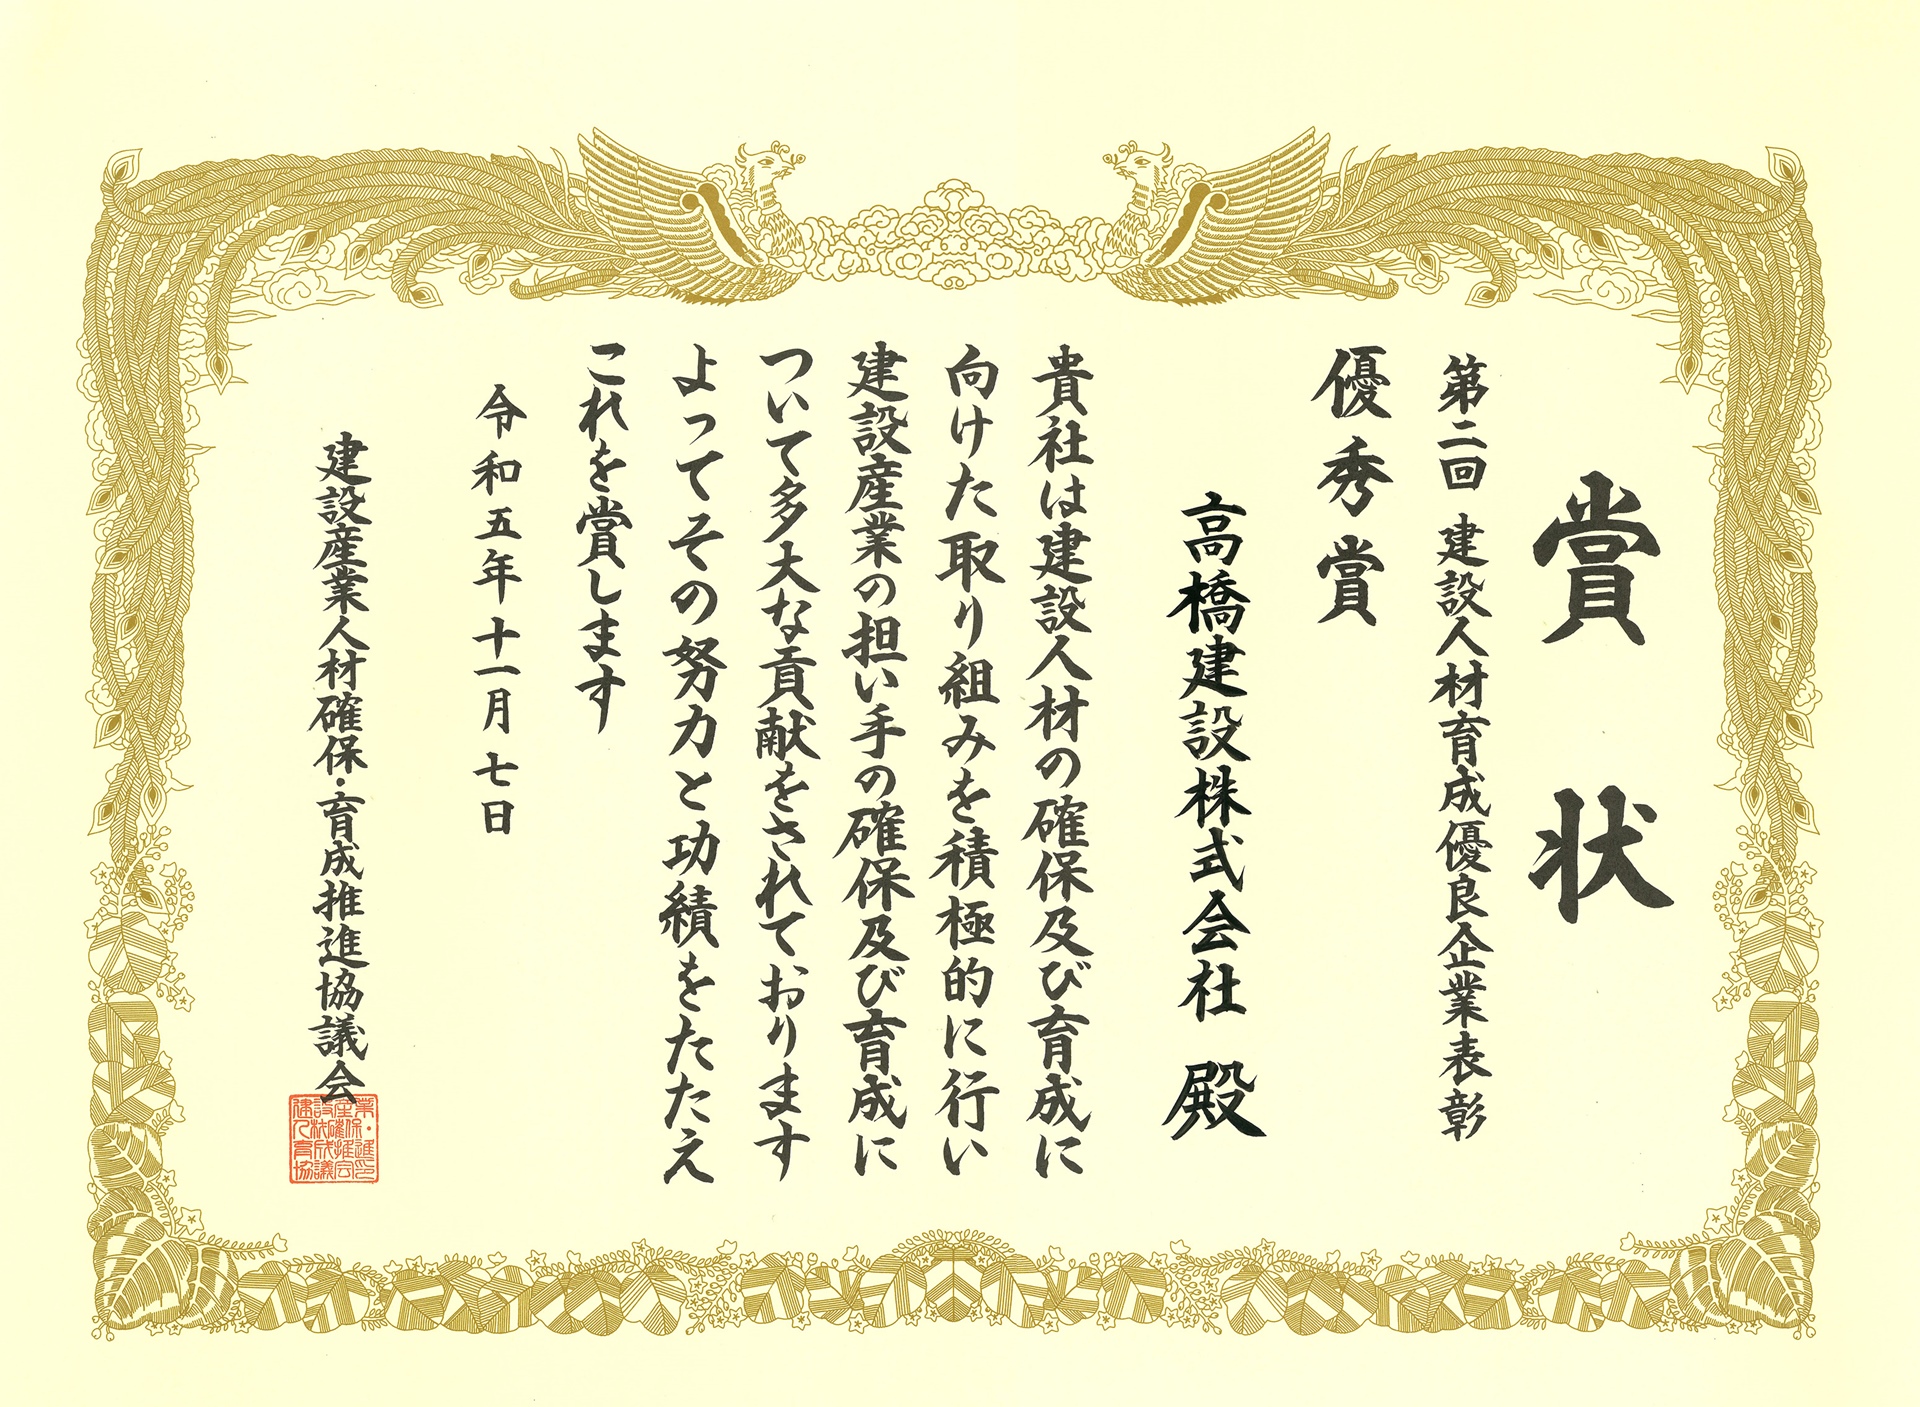 賞状
第二回 建設人材育成優良企業表彰
優秀賞
高橋建設株式会社 殿
貴社は建設人材の確保及び育成に
向けた取り組みを積極的に行い
建設産業の担い手の確保及び育成に
ついて多大な貢献をされております
よってその努力と功績をたたえ
これを賞します
令和五年十一月七日
建設産業人材確保・育成推進協議会
建設産業人材確保・育成推進協議会印